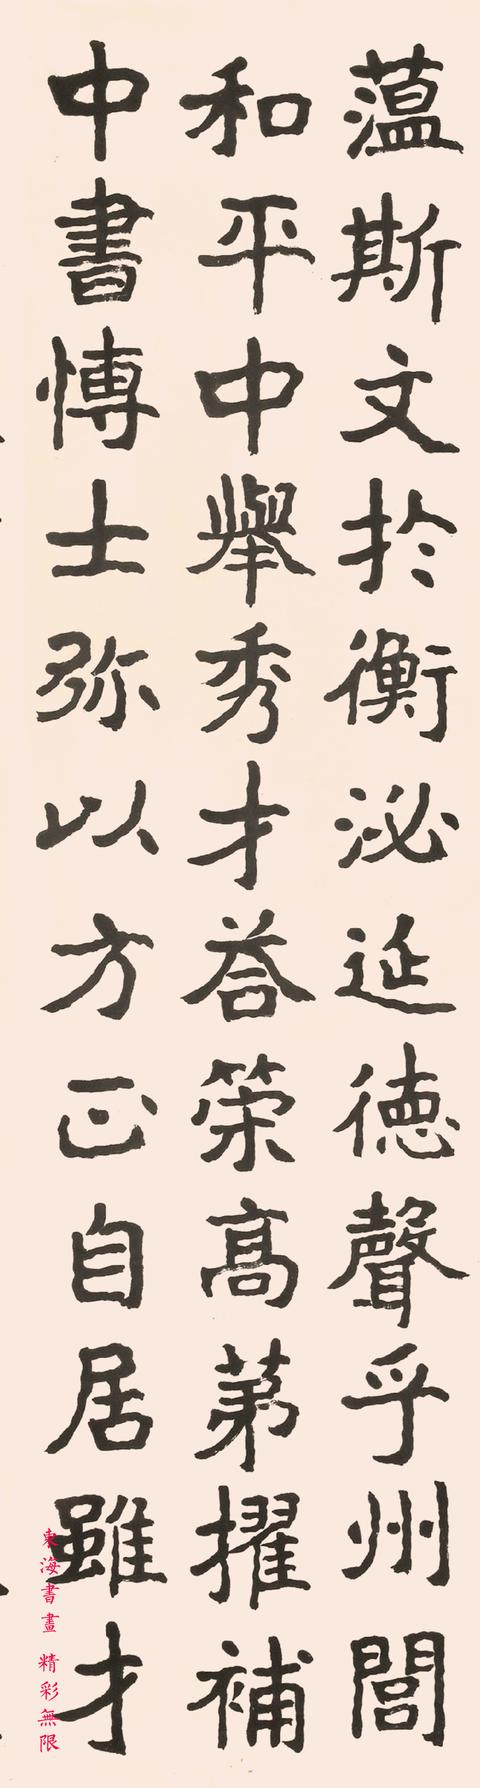 薀斯文於衡泌延德聲乎州閭
和平中舉秀才荅榮高苐擢補
中書博士弥以方正自居雖才
東海書畫 精彩無限